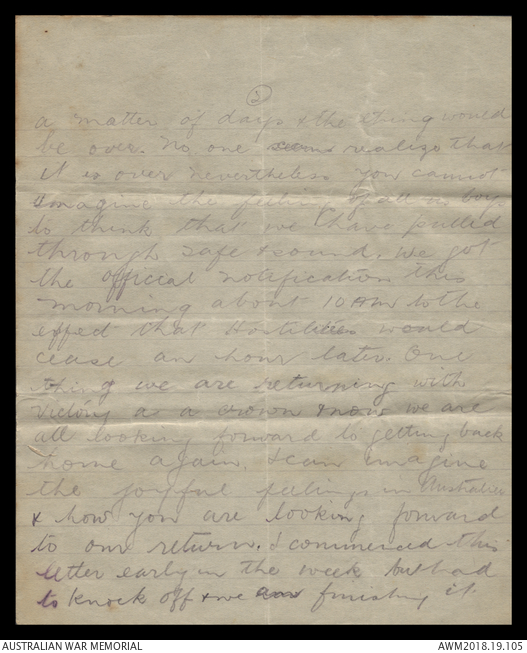 3
a matter of days & the thing would
be over. No one seems realize that
it is over nevertheless you cannot
imagine the feeling of all us boys
to think that we have pulled
through safe & sound. We got
the official notification this
morning about 10 AM to the
effect that Hostilities would
cease an hour later. One
thing we are returning with
victory as a crown & now we are
all looking forward to getting back
home again. I can imagine
the joyful feelings in Australia
& how you are looking forward
to our return. I commenced this
letter early in the week but had
to knock off & we are finishing it
AUSTRALIAN WAR MEMORIAL
AWM2018.19.105